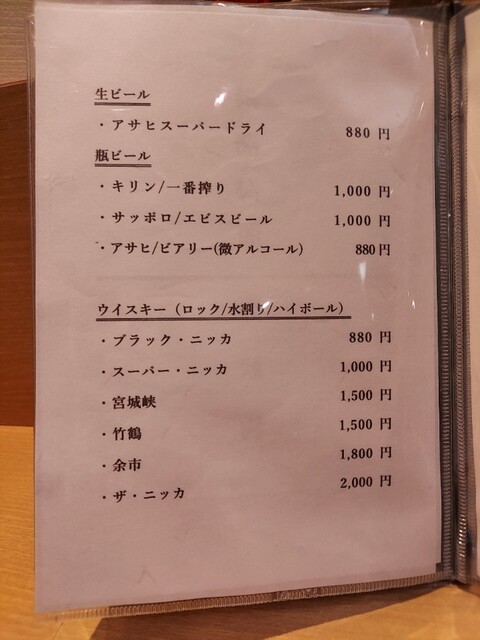 生ビール
・アサヒスーパードライ 880 円
瓶ビール
・キリン/一番搾り 1,000 円
・サッポロ/エビスビール 1,000 円
・アサヒ/ビアリー(微アルコール) 880 円
ウイスキー（ロック/水割り/ハイボール）
・ブラック・ニッカ 880 円
・スーパー・ニッカ 1,000 円
・宮城峡 1,500 円
・竹鶴 1,500 円
・余市 1,800 円
・ザ・ニッカ 2,000 円